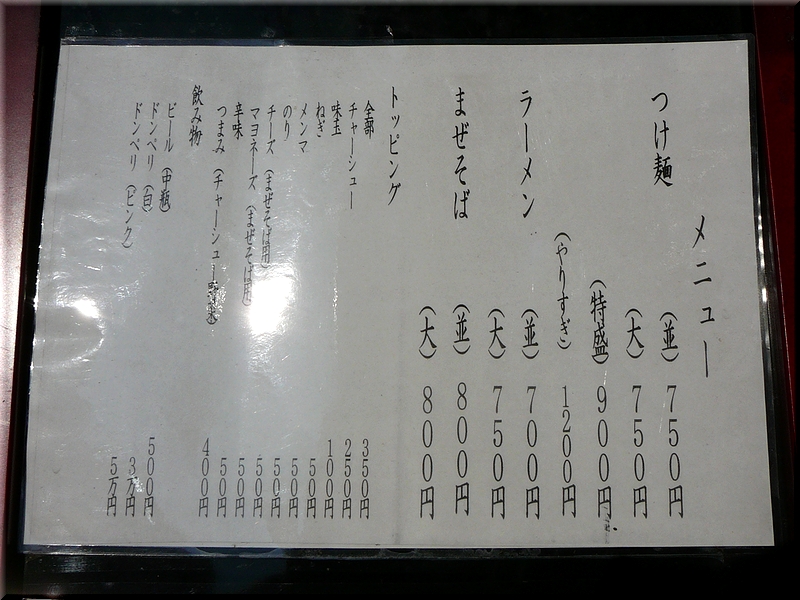 メニュー
つけ麺 (並) 750円
(大) 750円
(特盛) 900円
(やりすぎ) 1200円
ラーメン (並) 700円
(大) 750円
まぜそば (並) 800円
(大) 800円
トッピング
全部 350円
チャーシュー 250円
味玉 100円
ねぎ 50円
メンマ 50円
のり 50円
チーズ (まぜそば用) 50円
マヨネーズ (まぜそば用) 50円
辛味 50円
つまみ (チャーシュー 400円
飲み物
ビール (中瓶) 500円
ドンペリ (白) 3万円
ドンペリ (ピンク) 5万円